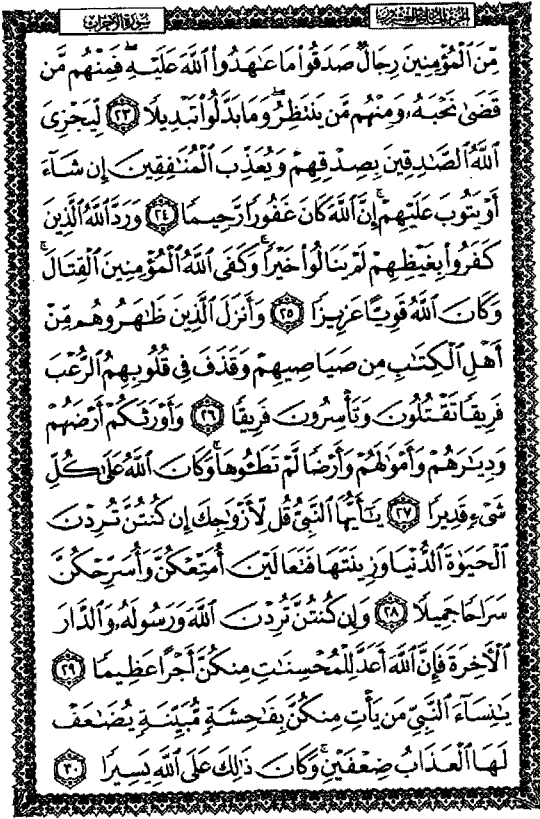 سورة الأحزاب
الجزء الحادي والعشرون
مِّنَ ٱلْمُؤْمِنِينَ رِجَالٌ صَدَقُوا۟ مَا عَٰهَدُوا۟ ٱللَّهَ عَلَيْهِ ۖ فَمِنْهُم مَّن
قَضَىٰ نَحْبَهُۥ وَمِنْهُم مَّن يَنتَظِرُ ۖ وَمَا بَدَّلُوا۟ تَبْدِيلًا ٢٣ لِّيَجْزِىَ
ٱللَّهُ ٱلصَّٰدِقِينَ بِصِدْقِهِمْ وَيُعَذِّبَ ٱلْمُنَٰفِقِينَ إِن شَآءَ
أَوْ يَتُوبَ عَلَيْهِمْ ۚ إِنَّ ٱللَّهَ كَانَ غَفُورًا رَّحِيمًا ٢٤ وَرَدَّ ٱللَّهُ ٱلَّذِينَ
كَفَرُوا۟ بِغَيْظِهِمْ لَمْ يَنَالُوا۟ خَيْرًا ۚ وَكَفَى ٱللَّهُ ٱلْمُؤْمِنِينَ ٱلْقِتَالَ ۚ
وَكَانَ ٱللَّهُ قَوِيًّا عَزِيزًا ٢٥ وَأَنزَلَ ٱلَّذِينَ ظَٰهَرُوهُم مِّنْ
أَهْلِ ٱلْكِتَٰبِ مِن صَيَاصِيهِمْ وَقَذَفَ فِى قُلُوبِهِمُ ٱلرُّعْبَ
فَرِيقًا تَقْتُلُونَ وَتَأْسِرُونَ فَرِيقًا ٢٦ وَأَوْرَثَكُمْ أَرْضَهُمْ
وَدِيَٰرَهُمْ وَأَمْوَٰلَهُمْ وَأَرْضًا لَّمْ تَطَـُٔوهَا ۚ وَكَانَ ٱللَّهُ عَلَىٰ كُلِّ
شَىْءٍ قَدِيرًا ٢٧ يَٰٓأَيُّهَا ٱلنَّبِىُّ قُل لِّأَزْوَٰجِكَ إِن كُنتُنَّ تُرِدْنَ
ٱلْحَيَوٰةَ ٱلدُّنْيَا وَزِينَتَهَا فَتَعَالَيْنَ أُمَتِّعْكُنَّ وَأُسَرِّحْكُنَّ
سَرَاحًا جَمِيلًا ٢٨ وَإِن كُنتُنَّ تُرِدْنَ ٱللَّهَ وَرَسُولَهُۥ وَٱلدَّارَ
ٱلْءَاخِرَةَ فَإِنَّ ٱللَّهَ أَعَدَّ لِلْمُحْسِنَٰتِ مِنكُنَّ أَجْرًا عَظِيمًا ٢٩
يَٰنِسَآءَ ٱلنَّبِىِّ مَن يَأْتِ مِنكُنَّ بِفَٰحِشَةٍ مُّبَيِّنَةٍ يُضَٰعَفْ
لَهَا ٱلْعَذَابُ ضِعْفَيْنِ ۚ وَكَانَ ذَٰلِكَ عَلَى ٱللَّهِ يَسِيرًا ٣٠